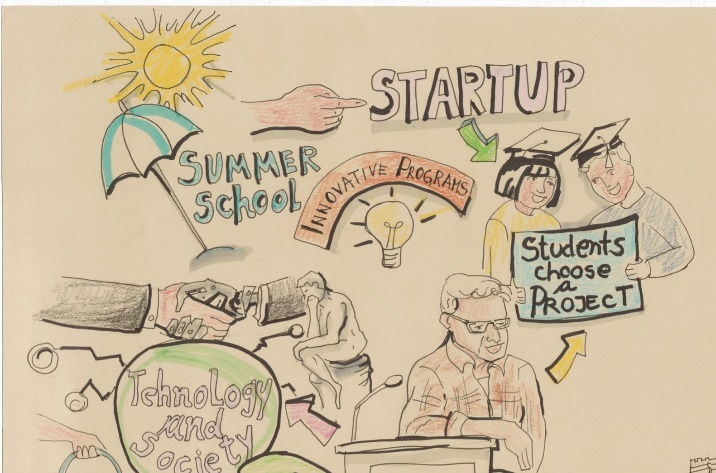 STARTUP
SUMMER
School
INNOVATIVE PROGRAMS
Students
choose
a
PROJECT
Tehnology
and
Society